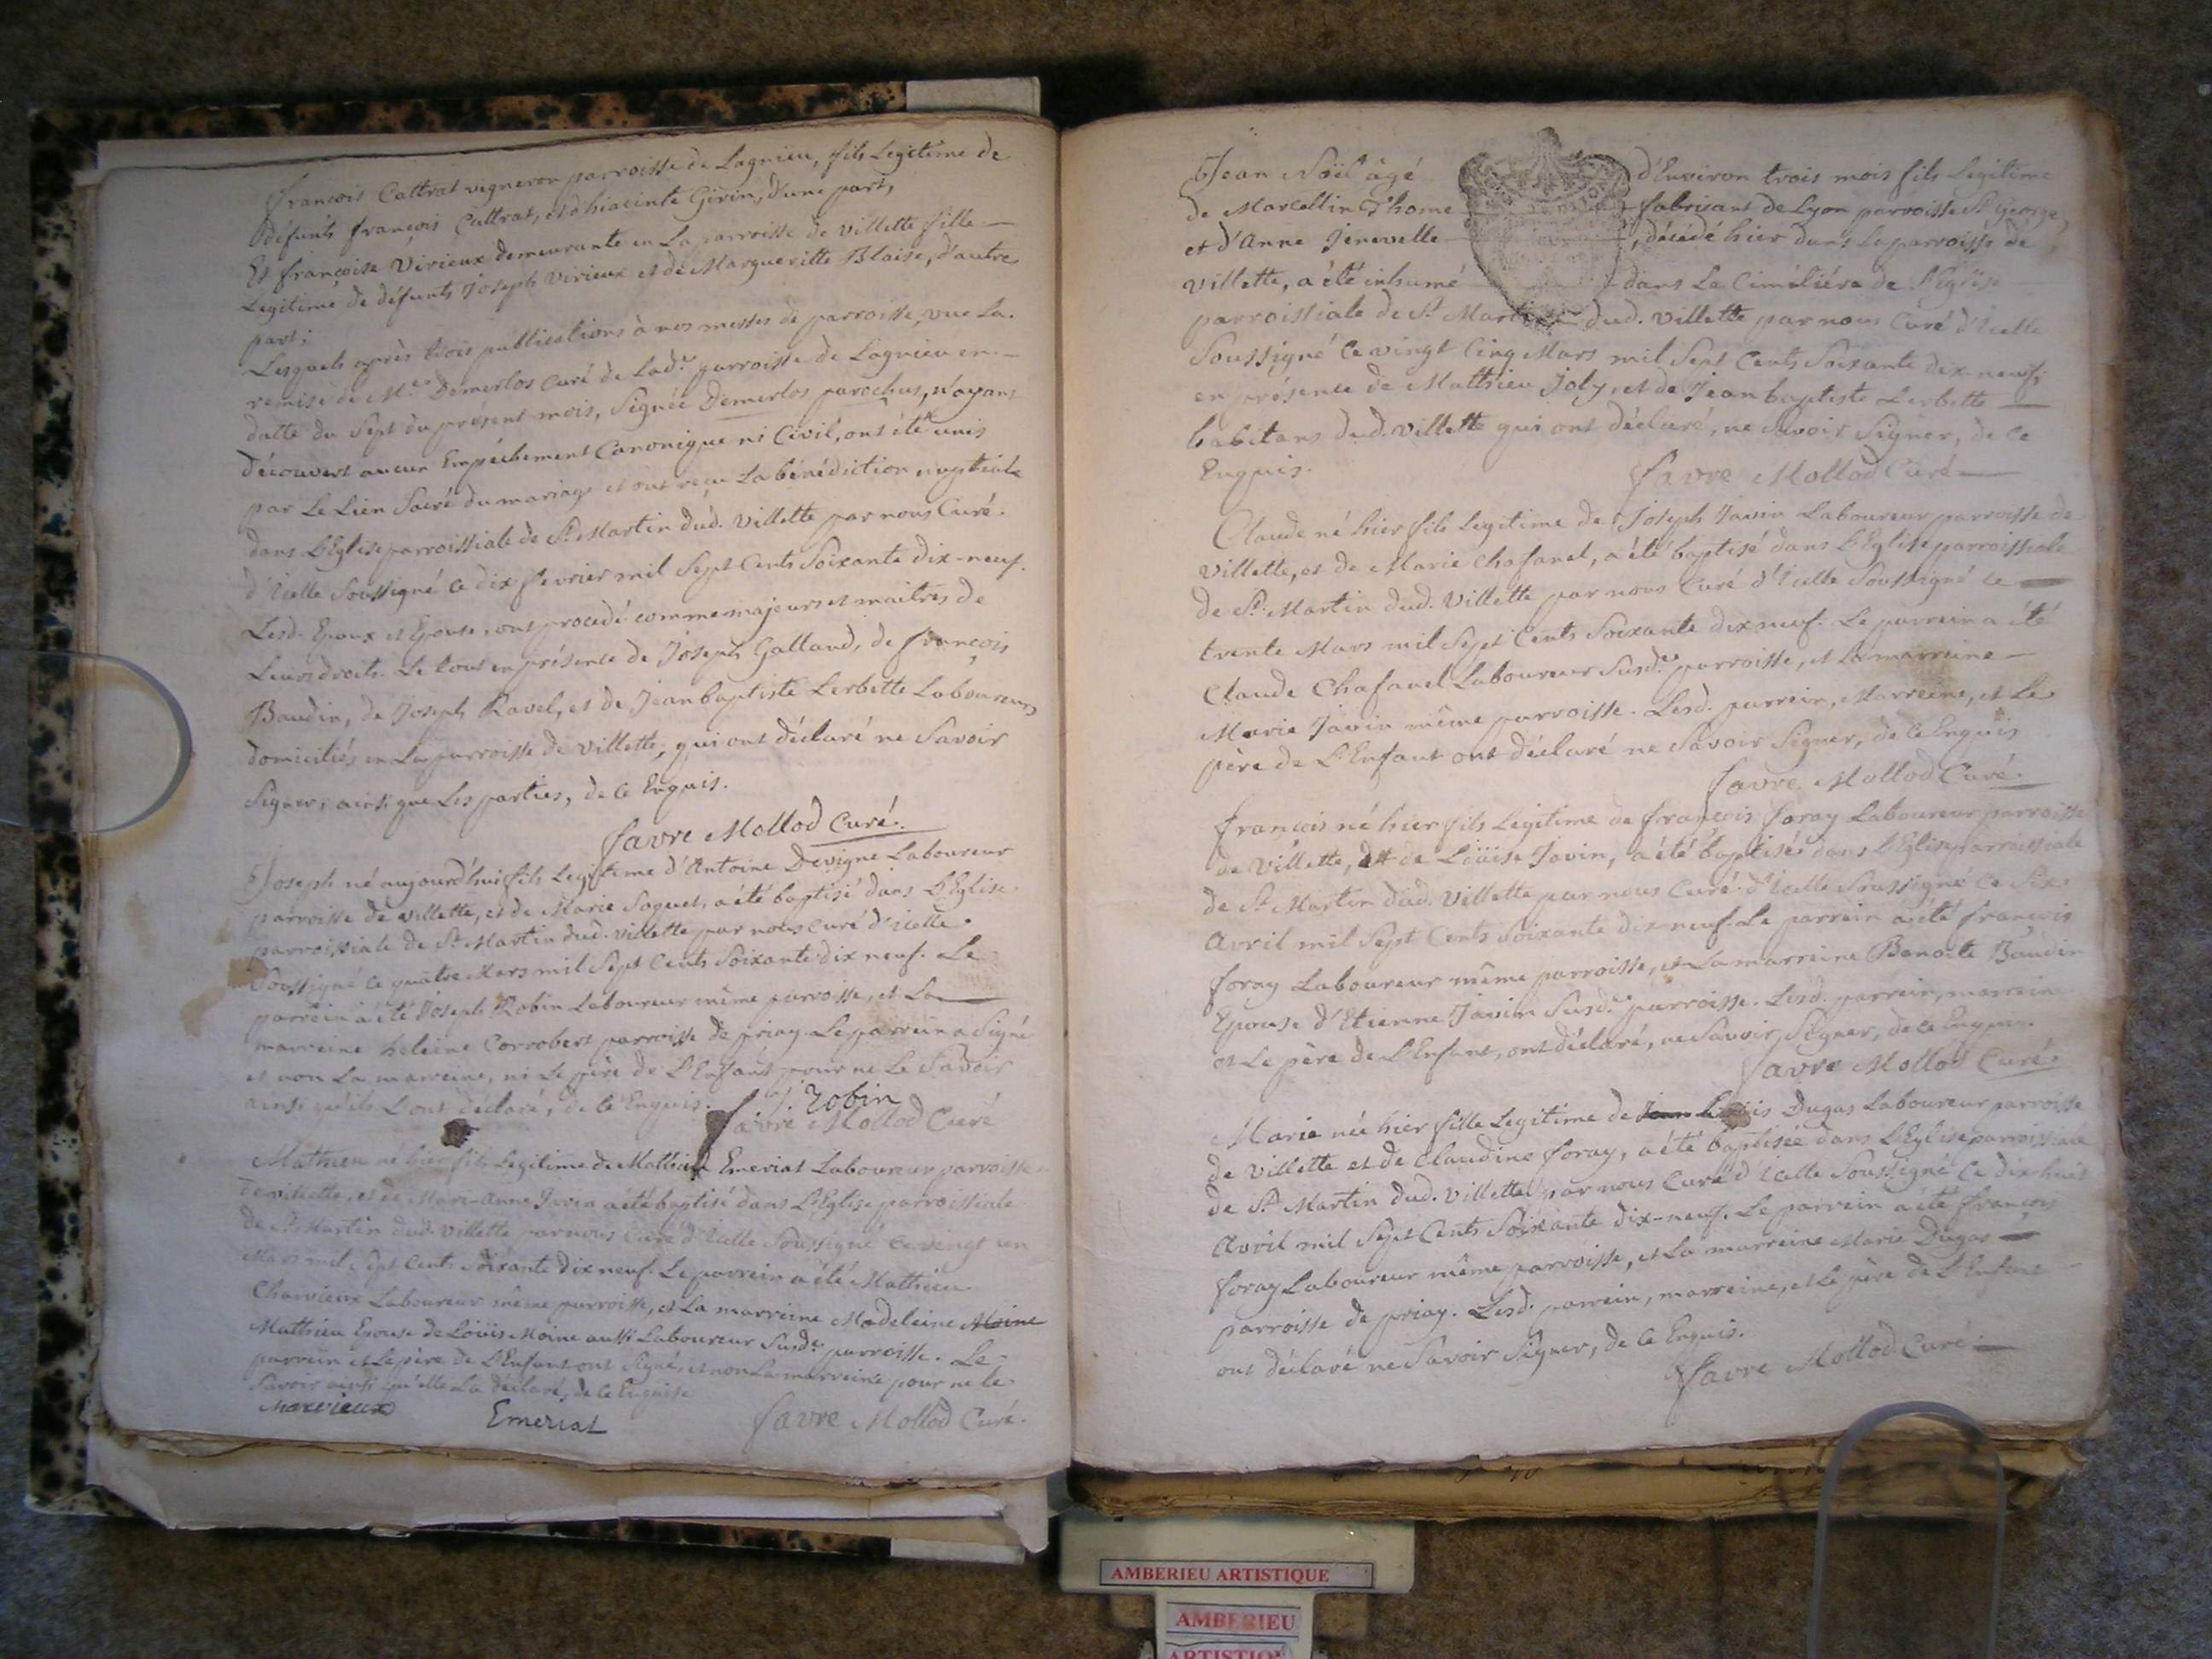 françois Cattrat vigneron parroisse de Lagnieu, fils Legitime de
défunts françois Cattrat, et d'hiacinte Girin, d'une part,
Et françoise Virieux demeurante en La parroisse de villette fille
Legitime de défunts Joseph Virieux et de Margueritte Blaise, d'autre
part;
Lesquels après trois publications à nos messes de parroisse, vue La
remise de Mre Demerlos Curé de Lade parroisse de Lagnieu en
datte du Sept du présent mois, Signée Demerlos parochus, n'ayant
découvert aucun Empêchement Canonique ni Civil, ont été unis
par Le Lien Sacré du mariage et ont reçu La bénédiction nuptiale
dans L'Eglise parroissiale de St Martin dud. Villette par nous Curé
d'Icelle Soussigné Ce dix fevrier mil Sept Cents Soixante Dix-neuf.
Lesd. Epoux et Epouse, ont procedé comme majeurs et maitres de
Leurs droits. Le tout en présence de Joseph Galland, de françois
Baudin, de Joseph Ravel, et de Jean baptiste Lerbette Laboureurs
domiciliés en La parroisse de Villette, qui ont déclaré ne Savoir
Signer, ainsi que Les parties, de Ce Enquis.
favre Mollod Curé.
Joseph né aujourd'hui fils Legitime d'Antoine Devigne Laboureur
parroisse de villette, et de Marie Saguet, a été baptisé dans L'Eglise
parroissiale de St Martin dud. villette par nous Curé d'Icelle
Soussigné Ce quatre Mars mil Sept Cents Soixante dix neuf. Le
parrein a été Joseph Robin Laboureur même parroisse, et La
marreine heleine Corrobert parroisse de priay. Le parrein a Signé
et non La marreine, ni Le père de L'Enfant pour ne Le Savoir
ainsi qu'ils L'ont déclaré, de Ce Enquis. j. Robin
favre Mollod Curé
Mathieu né hier fils Legitime de Mathieu Emeriat Laboureur parroisse
de villette, et de Marie-Anne Javin a été baptisé dans L'Eglise parroissiale
de St Martin dud. Villette par nous Curé d'Icelle Soussigné Ce vingt un
Mars mil Sept Cents Soixante dix neuf. Le parrein a été Mathieu
Charvieux Laboureur même parroisse, et La marreine Madeleine Moine
Mathieu Epouse de Loüis Moine aussi Laboureur Susde parroisse. Le
parrein et Le père de L'Enfant ont Signé, et non La marreine pour ne le
Savoir ainsi qu'elle L'a déclaré, de Ce Enquise
Emeriat favre Mollod Curé.
Jean Noël âgé d'Environ trois mois fils Legitime
de Marcellin d'home fabrisant de Lyon parroisse St George,
et d'Anne Jenevelle , décédé hier dans La parroisse de
Villette, a été inhumé dans Le Cimétiére de L'Eglise
parroissiale de St Martin dud. Villette par nous Curé d'Icelle
Soussigné Ce vingt Cinq Mars mil Sept Cents Soixante dix-neuf,
en présence de Mathieu Joly, et de Jean baptiste Lerbette
habitans dud. Villette qui ont déclaré, ne Savoir Signer, de Ce
Enquis. favre Mollod Curé
Claude né hier fils Legitime de Joseph Javin Laboureur parroisse de
Villette, et de Marie Chafanel, a été baptisé dans L'Eglise parroissiale
de St Martin dud. Villette par nous Curé d'Icelle Soussigné Ce
trente Mars mil Sept Cents Soixante dix neuf. Le parrein a été
Claude Chafanel Laboureur Susde parroisse, et La marreine
Marie Javin même parroisse. Lesd. parrein, Marreine, et Le
père de L'Enfant ont déclaré ne Savoir Signer, de Ce Enquis
favre Mollod Curé.
françois né hier fils Legitime de françois foray Laboureur parroisse
de Villette, et de Loüise Javin, a été baptisé dans L'Eglise parroissiale
de St Martin dud. Villette par nous Curé d'Icelle Soussigné Ce Six
Avril mil Sept Cents Soixante dix neuf. Le parrein a été françois
foray Laboureur même parroisse, et La marreine Benoite Baudin
Epouse d'Etienne Javin Susde parroisse. Lesd. parrein, marreine
et Le père de L'Enfant, ont déclaré, ne Savoir Signer, de Ce Enquis.
favre Mollod Curé.
Marie née hier fille Legitime de Dugas Laboureur parroisse
de Villette et de Claudine foray, a été baptisée dans L'Eglise parroissiale
de St Martin dud. Villette par nous Curé d'Icelle Soussigné Ce dix huit
Avril mil Sept Cents Soixante dix-neuf. Le parrein a été françois
foray Laboureur même parroisse, et La marreine Marie Dugas
parroisse de priay. Lesd. parrein, marreine, et Le père de L'Enfant
ont déclaré ne Savoir Signer, de Ce Enquis.
favre Mollod Curé.
AMBERIEU ARTISTIQUE
AMBERIEU
ARTISTIQUE